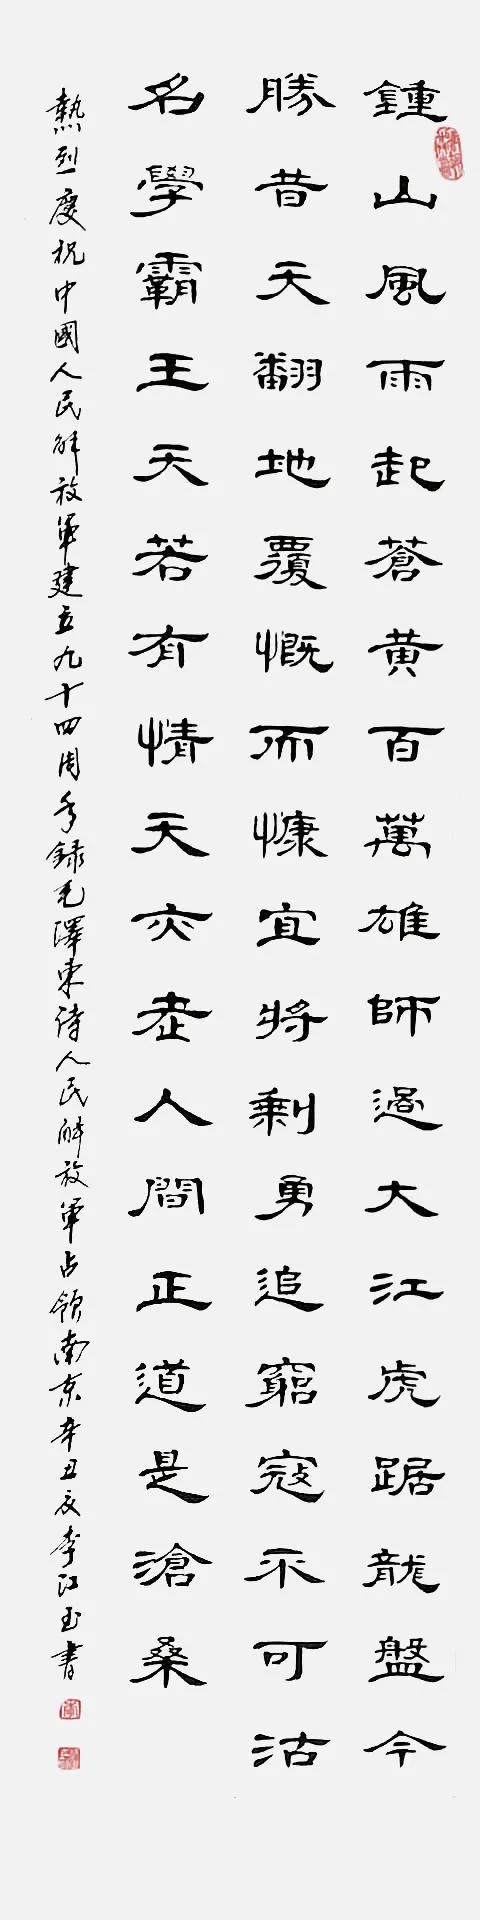 鍾山風雨起蒼黃百萬雄師過大江虎踞龍盤今
勝昔天翻地覆慨而慷宜將剩勇追窮寇不可沽
名學霸王天若有情天亦老人間正道是滄桑
熱烈慶祝中國人民解放軍建立九十四周年錄毛澤東詩人民解放軍占領南京辛丑夏李江玉書